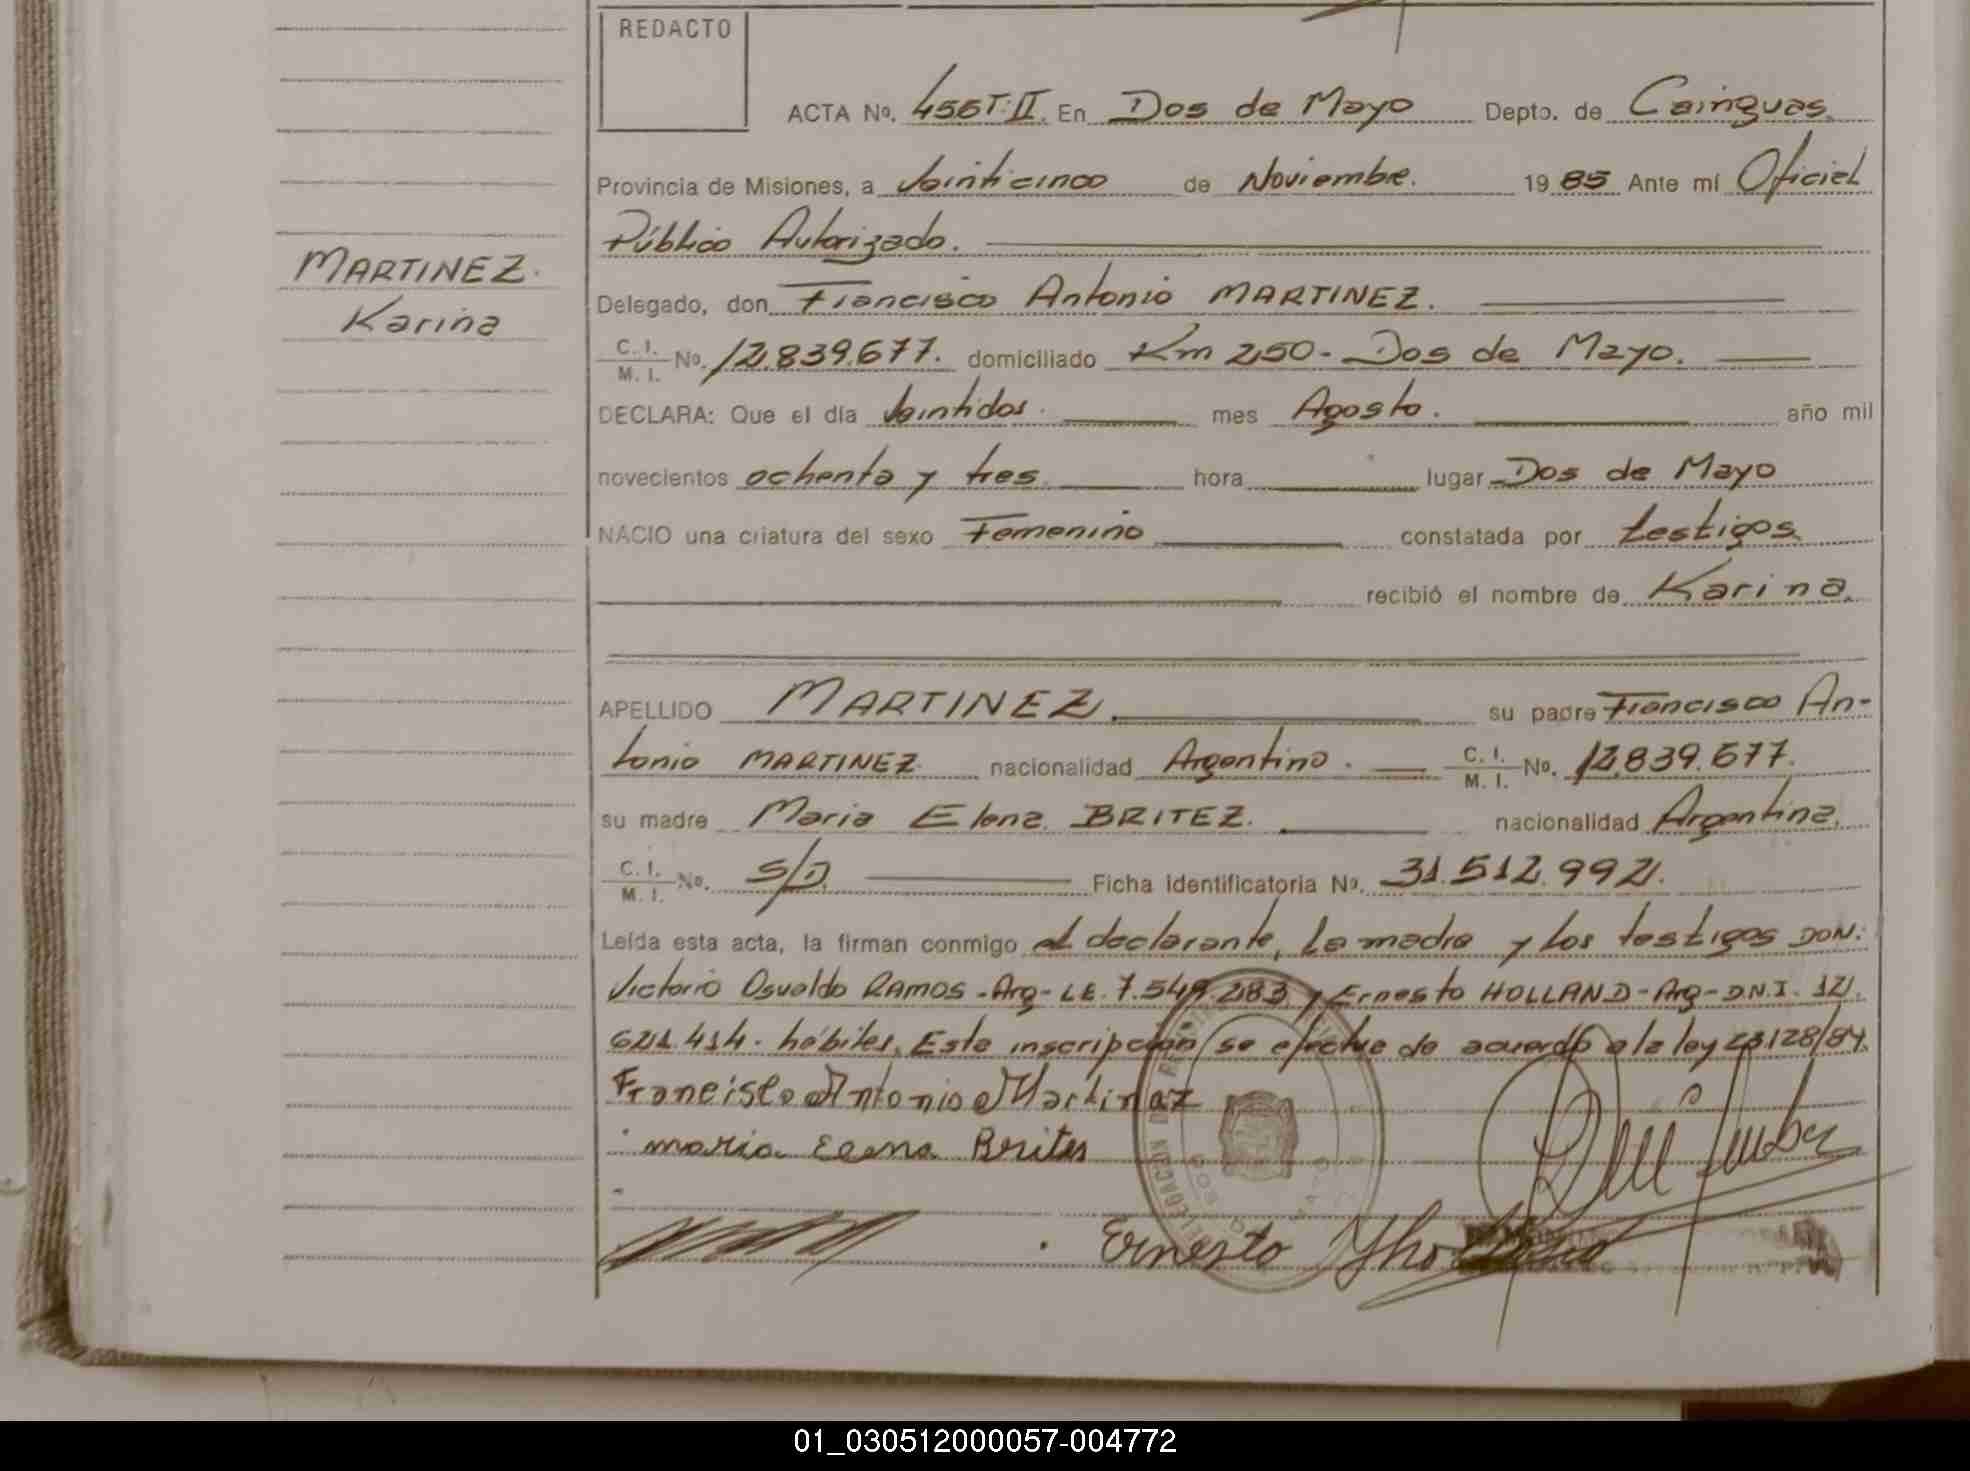 REDACTO
ACTA Nº. 455 T: II. En Dos de Mayo Depto. de Cainguas.
Provincia de Misiones, a Veinticinco de Noviembre. 19 85 Ante mí Oficial
Público Autorizado.
MARTINEZ.
Karina
Delegado, don Francisco Antonio MARTINEZ.
C. I. M. I. No. 12.839.677. domiciliado Km 250 - Dos de Mayo.
DECLARA: Que el día Veintidos. mes Agosto. año mil
novecientos ochenta y tres hora lugar Dos de Mayo
NACIO una criatura del sexo Femenino constatada por testigos.
recibió el nombre de Karina.
APELLIDO MARTINEZ. su padre Francisco An-
tonio MARTINEZ nacionalidad Argentino. C. I. M. I. No. 12.839.677.
su madre Maria Elena BRITEZ. nacionalidad Argentina.
C. I. M. I. No. S/D. Ficha Identificatoria Nº. 31.512.992.
Leída esta acta, la firman conmigo el declarante, la madre y los testigos DON:
Victorio Osvaldo RAMOS - Arg - L.E. 7.549.283 y Ernesto HOLLAND - Arg - D.N.I. 12.
621.414. hábiles. Esta inscripción se efectue de acuerdo a la ley 23.128/84.
Francisco Antonio Martinaz
maria Elena Brites
Ernesto
01_030512000057-004772